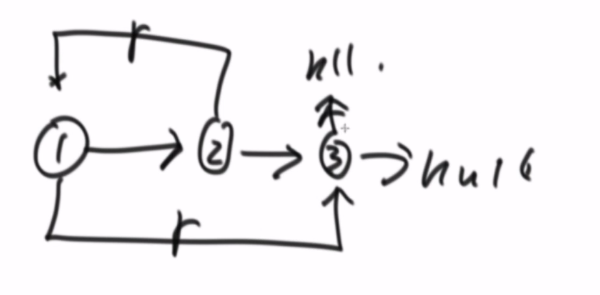 r
nll.
1
2
3
null
r